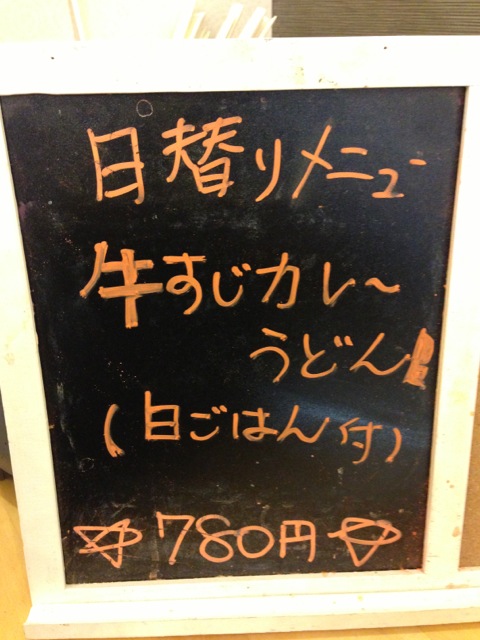 日替りメニュー
牛すじカレー
うどん
(日ごはん付)
780円